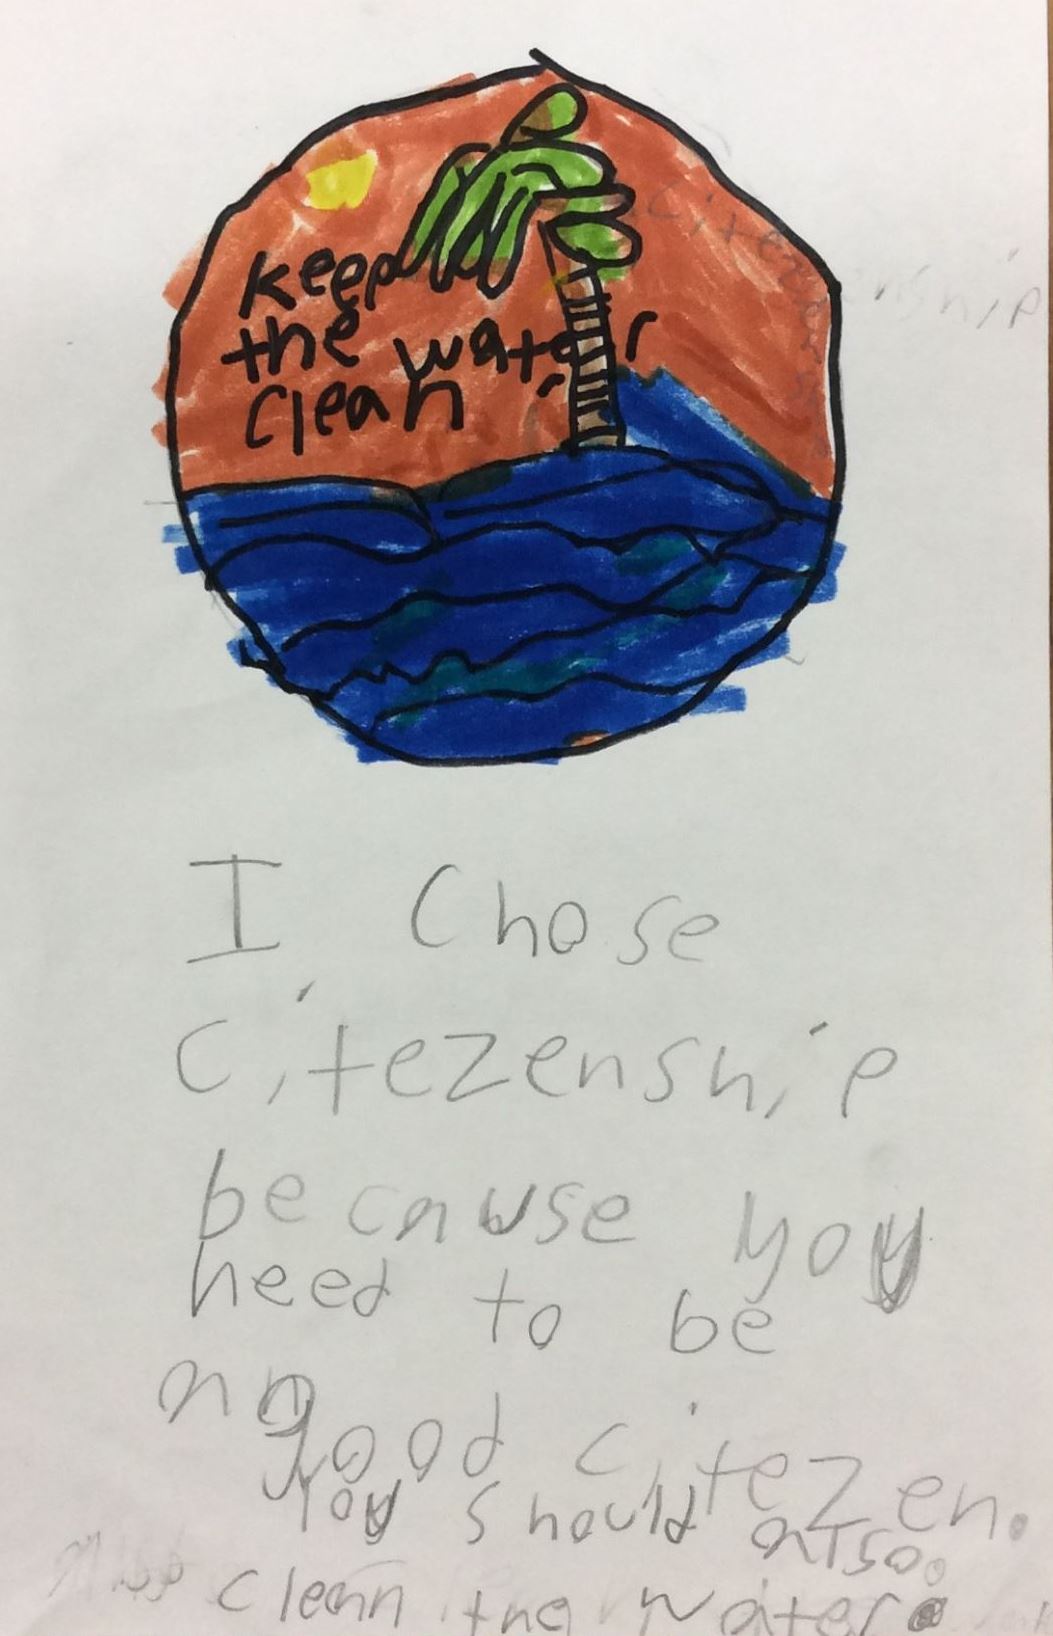 keep
the water
clean
citezenship
I chose
citezenship
because you
need to be
an
good citezen.
You should also.
clean the water.